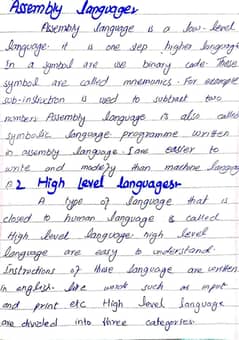 Assembly languages
Assembly language is a low-level
language. it is one step higher language
In a symbol are use binary code. These
symbol are called mnemonics. For example
sub-instruction is used to subtract two
numbers Assembly language is also called
symbolic language programme written
in assembly language. are easier to
write and modify than machine language
2 High level languages
A type of language that is
closed to human language is called
High level language high level
language are easy to understand.
Instructions of these language are written
in english like words such as input
and print etc High level language
are divided into three categories.